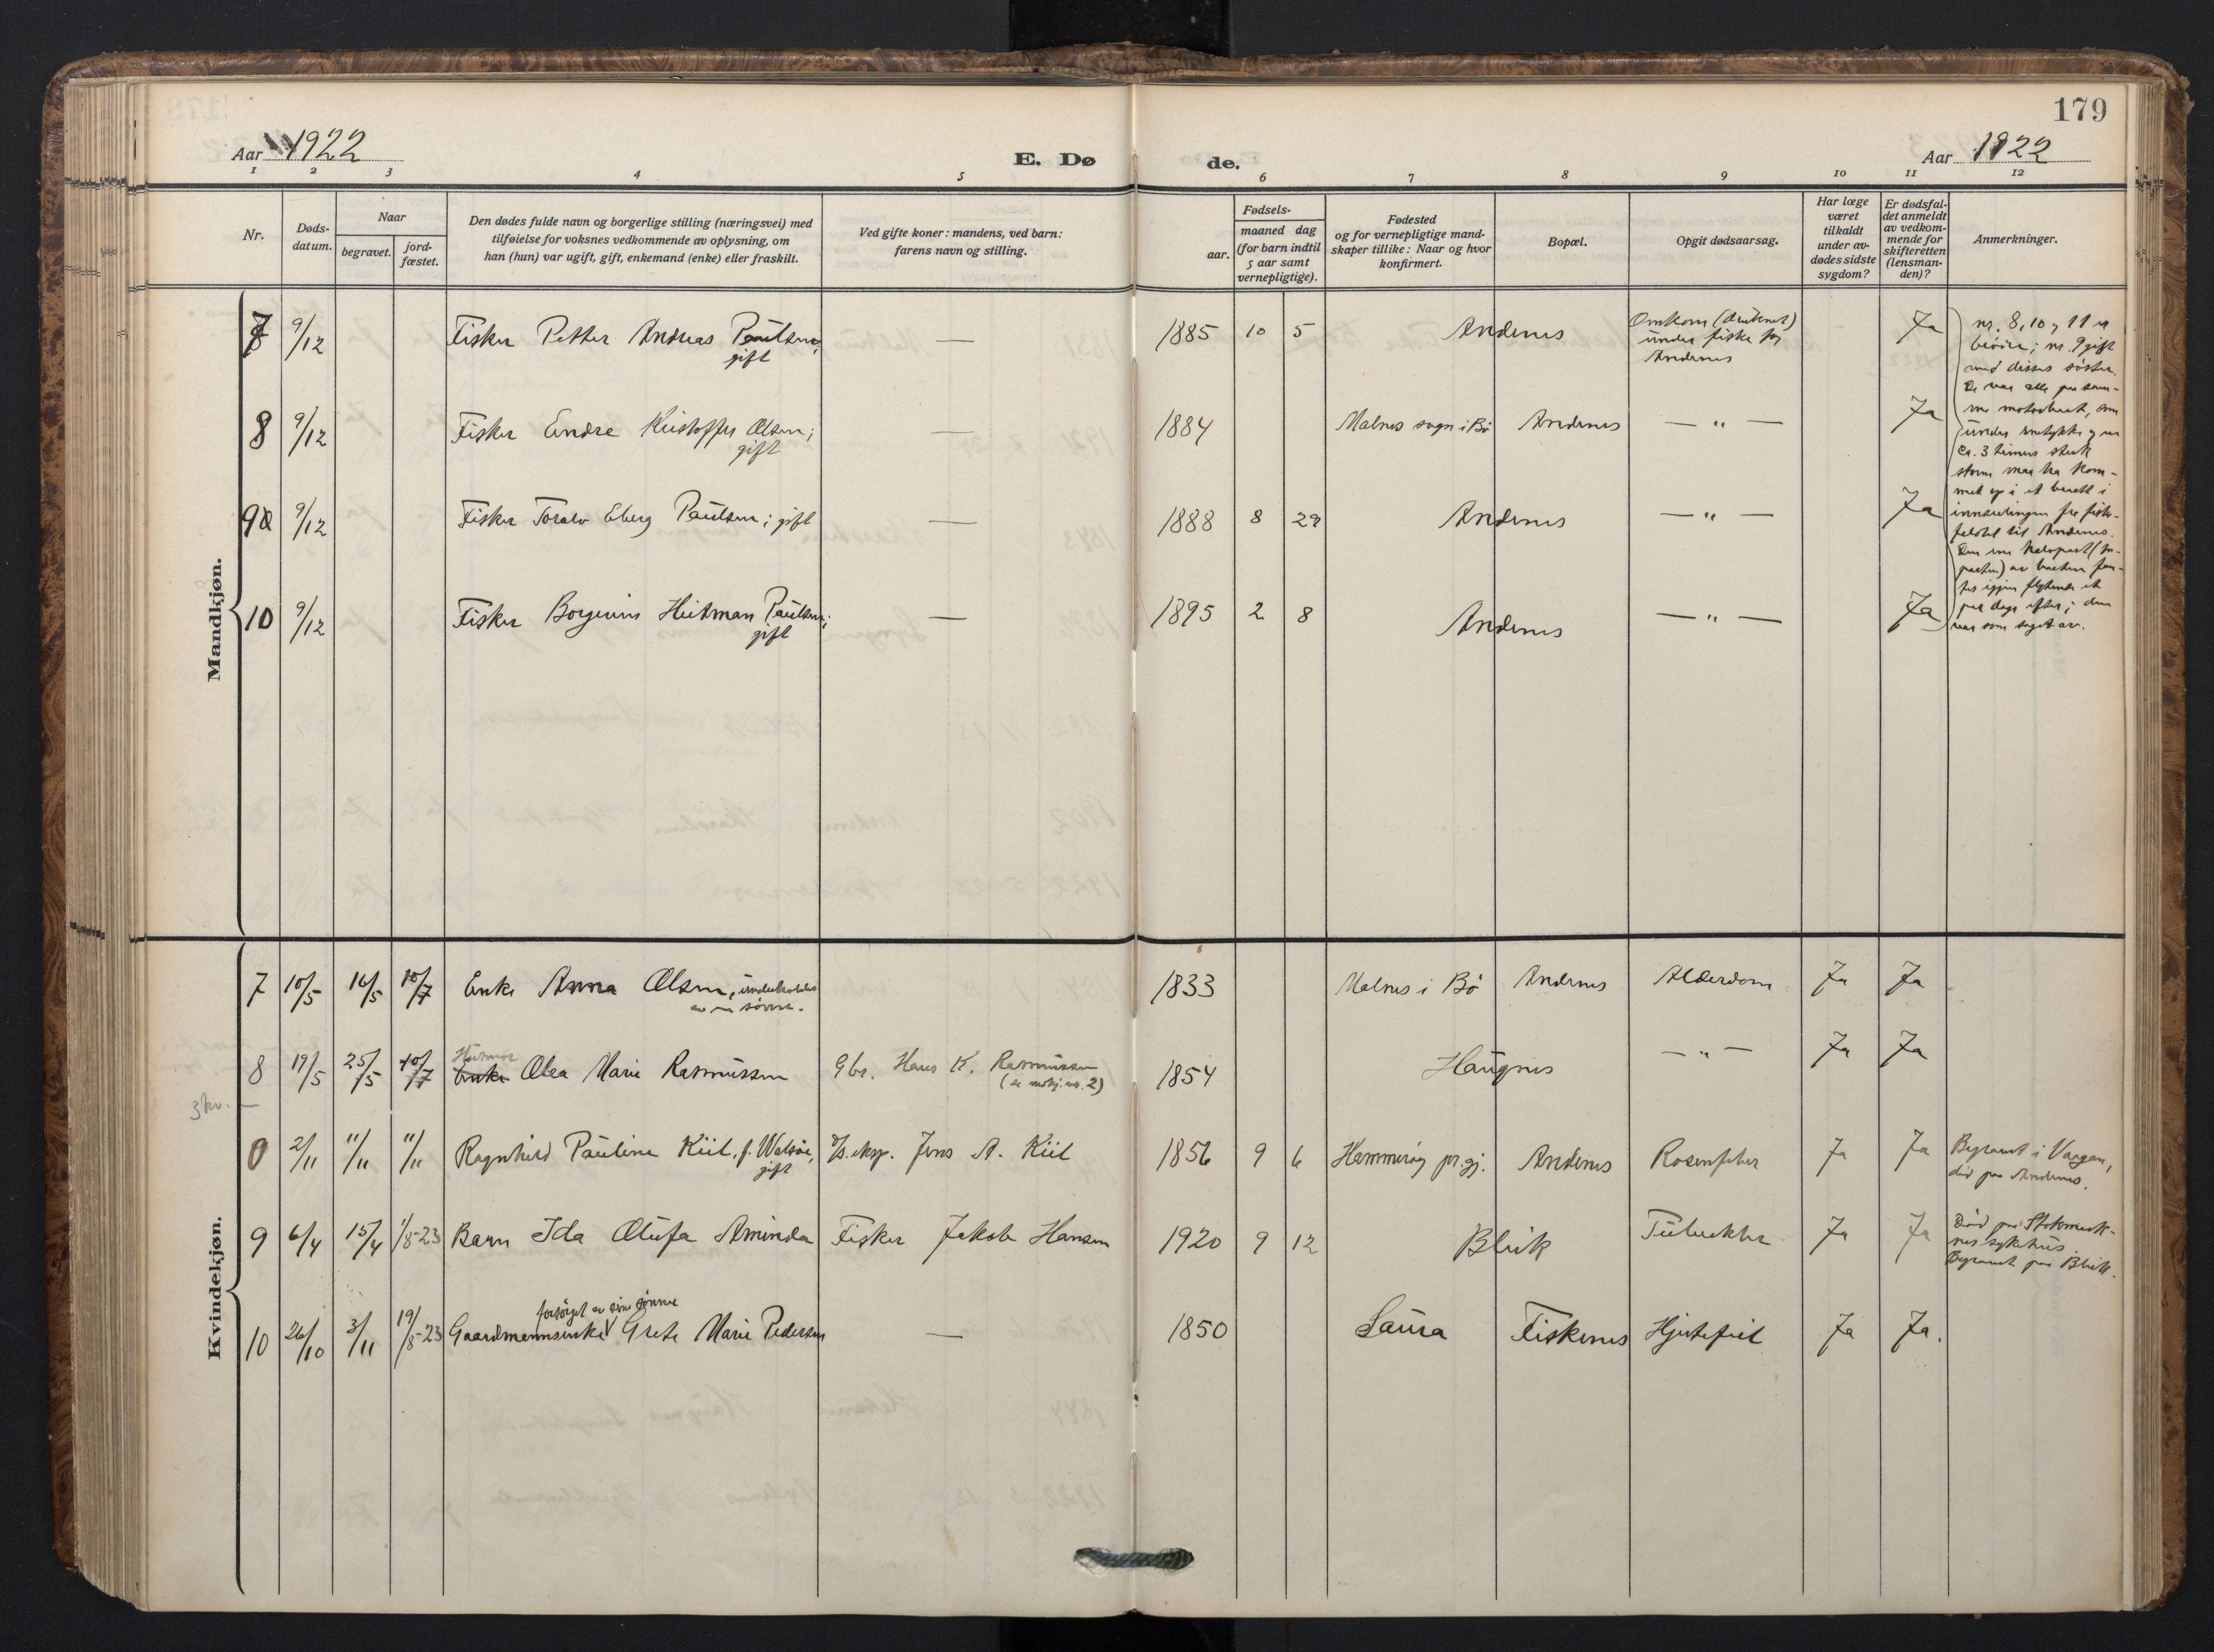 179
Aar 1922
E. Dø de.
Aar 1922
1 2 3 4 5 6 7 8 9 10 11 12
Nr.
Døds-
datum.
Naar
begravet.
jord-
fæstet.
Den dødes fulde navn og borgerlige stilling (næringsvei) med
tilføielse for voksnes vedkommende av oplysning, om
han (hun) var ugift, gift, enkemand (enke) eller fraskilt.
Ved gifte koner: mandens, ved barn:
farens navn og stilling.
aar.
Fødsels-
maaned dag
(for barn indtil
5 aar samt
vernepligtige).
Fødested
og for vernepligtige mand-
skaper tillike: Naar og hvor
konfirmert.
Bopæl.
Opgit dødsaarsag.
Har læge
været
tilkaldt
under av-
dødes sidste
sygdom?
Er dødsfal-
det anmeldt
av vedkom-
mende for
skifteretten
(lensman-
den)?
Anmerkninger.
Mandkjøn.
7 9/12 Fisker Petter Andreas Paulsen;
gift
— 1885 10 5 Andenes
Omkom (druknet)
under fiske fra
Andenes
Ja
8 9/12 Fisker Endre Kristoffer Olsen;
gift
— 1884 Malnes sogn i Bø Andenes — " — Ja
9 9/12 Fisker Toralv Eberg Paulsen; gift — 1888 8 29 Andenes — " — Ja
10 9/12 Fisker Borgenius Hartman Paulsen;
gift
— 1895 2 8 Andenes — " — Ja
nr. 8, 10 og 11 er
brødre; nr. 9 gift
med disses søster.
De var alle paa sam-
me motorbaat, som
under snetykke og en
ca. 3 timers sterk
storm maa ha kom-
met op i et braatt i
innseilingen fra fiske-
feltet til Andenes.
Den ene halvpart
av baaten fan-
tes igjen flytende et
par dage efter; den
var som saget av.
Kvindekjøn.
7 10/5 16/5 10/7 Enke Anna Olsen, underholdes
av en sønn.
1833 Malnes i Bø Andenes Alderdom Ja Ja
8 19/5 25/5 10/7 Husmor
Enke Olea Marie Rasmussen Gbr. Hans K. Rasmussen
(se mskj. nr. 2)
1854 Haugnes — " — Ja Ja
3 kv. —
0 2/11 11/11 11/11 Ragnhild Pauline Kiil, f. Watsøe,
gift
D/s.eksp. Jens A. Kiil 1856 9 6 Hammerøy pr.gj. Andenes Rosenfeber Ja Ja
Begravet i Vaagan,
død paa Andenes.
9 6/4 15/4 1/8-23 Barn Ida Olufa Aminda Fisker Jakob Hansen 1920 9 12 Bleik Tuberkler Ja Ja
Død paa Stokmark-
nes sykehus.
Begravet paa Bleik.
forsørget av sine sønner
10 26/10 3/11 19/8-23 Gaardmannsenke Grete Marie Pedersen — 1850 Saura Fiskenes Hjertefeil Ja Ja.